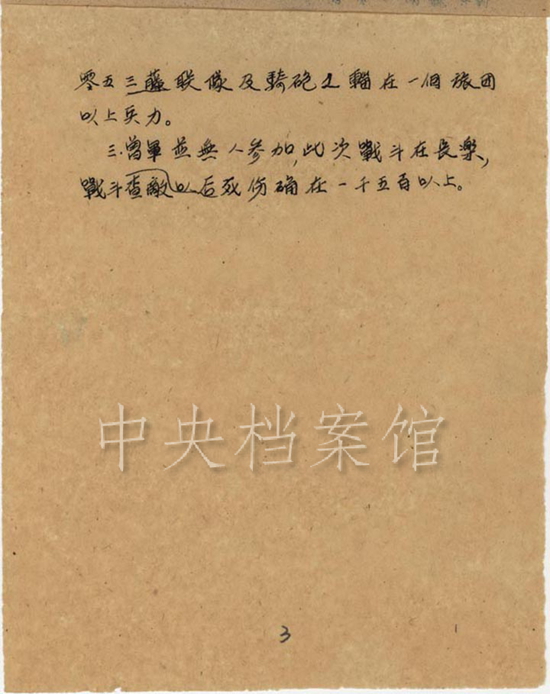 零五三藤联队及骑砲工辎在一個旅团
以上兵力。
三.曾軍並無人参加,此次戰斗在長樂,
戰斗查敵以后死伤确在一千五百以上。
中央档案馆
3